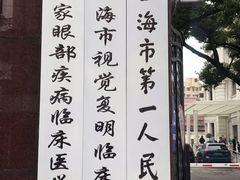 上海市第一人民
上海市视觉复明临床
家眼部疾病临床医学